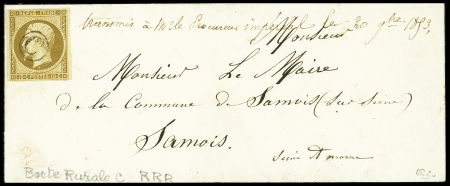 REPUB. FRANC.
10 C. POSTES 10 C.
transmis à Mr le Procureur impérial le 20 9bre 1853,
Monsieur
Monsieur Le Maire
de la Commune de Samois (sur seine)
Samois.
seine et marne
Boite Rurale C RRR